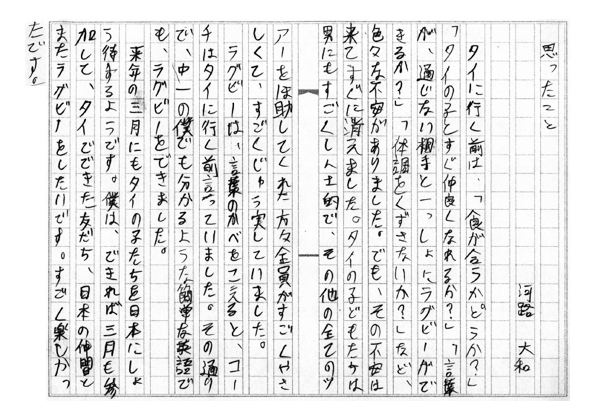 思ったこと
河路 大和
タイに行く前は、「食が合うかどうか？」
「タイの子とすぐ仲良くなれるか？」「言葉
が、通じない相手と一っしょにラグビーがで
きるか？」「体調をくずさないか？」など、
色々な不安がありました。でも、その不安は
来てすぐに消えました。タイの子どもたちは
男にもすごくしん士的で、その他の全てのツ
アーをほ助してくれた方々全員がすごくやさ
しくて、すごくじゅう実していました。
ラグビーは、言葉のかべをこえると、コー
チはタイに行く前言っていました。その通り
で、中一の僕でも分かるような簡単な英語で
も、ラグビーをできました。
来年の三月にもタイの子たちを日本にしょ
う待するようです。僕は、できれば三月も参
加して、タイでできた友だち、日本の仲間と
またラグビーをしたいです。すごく楽しかっ
たです。